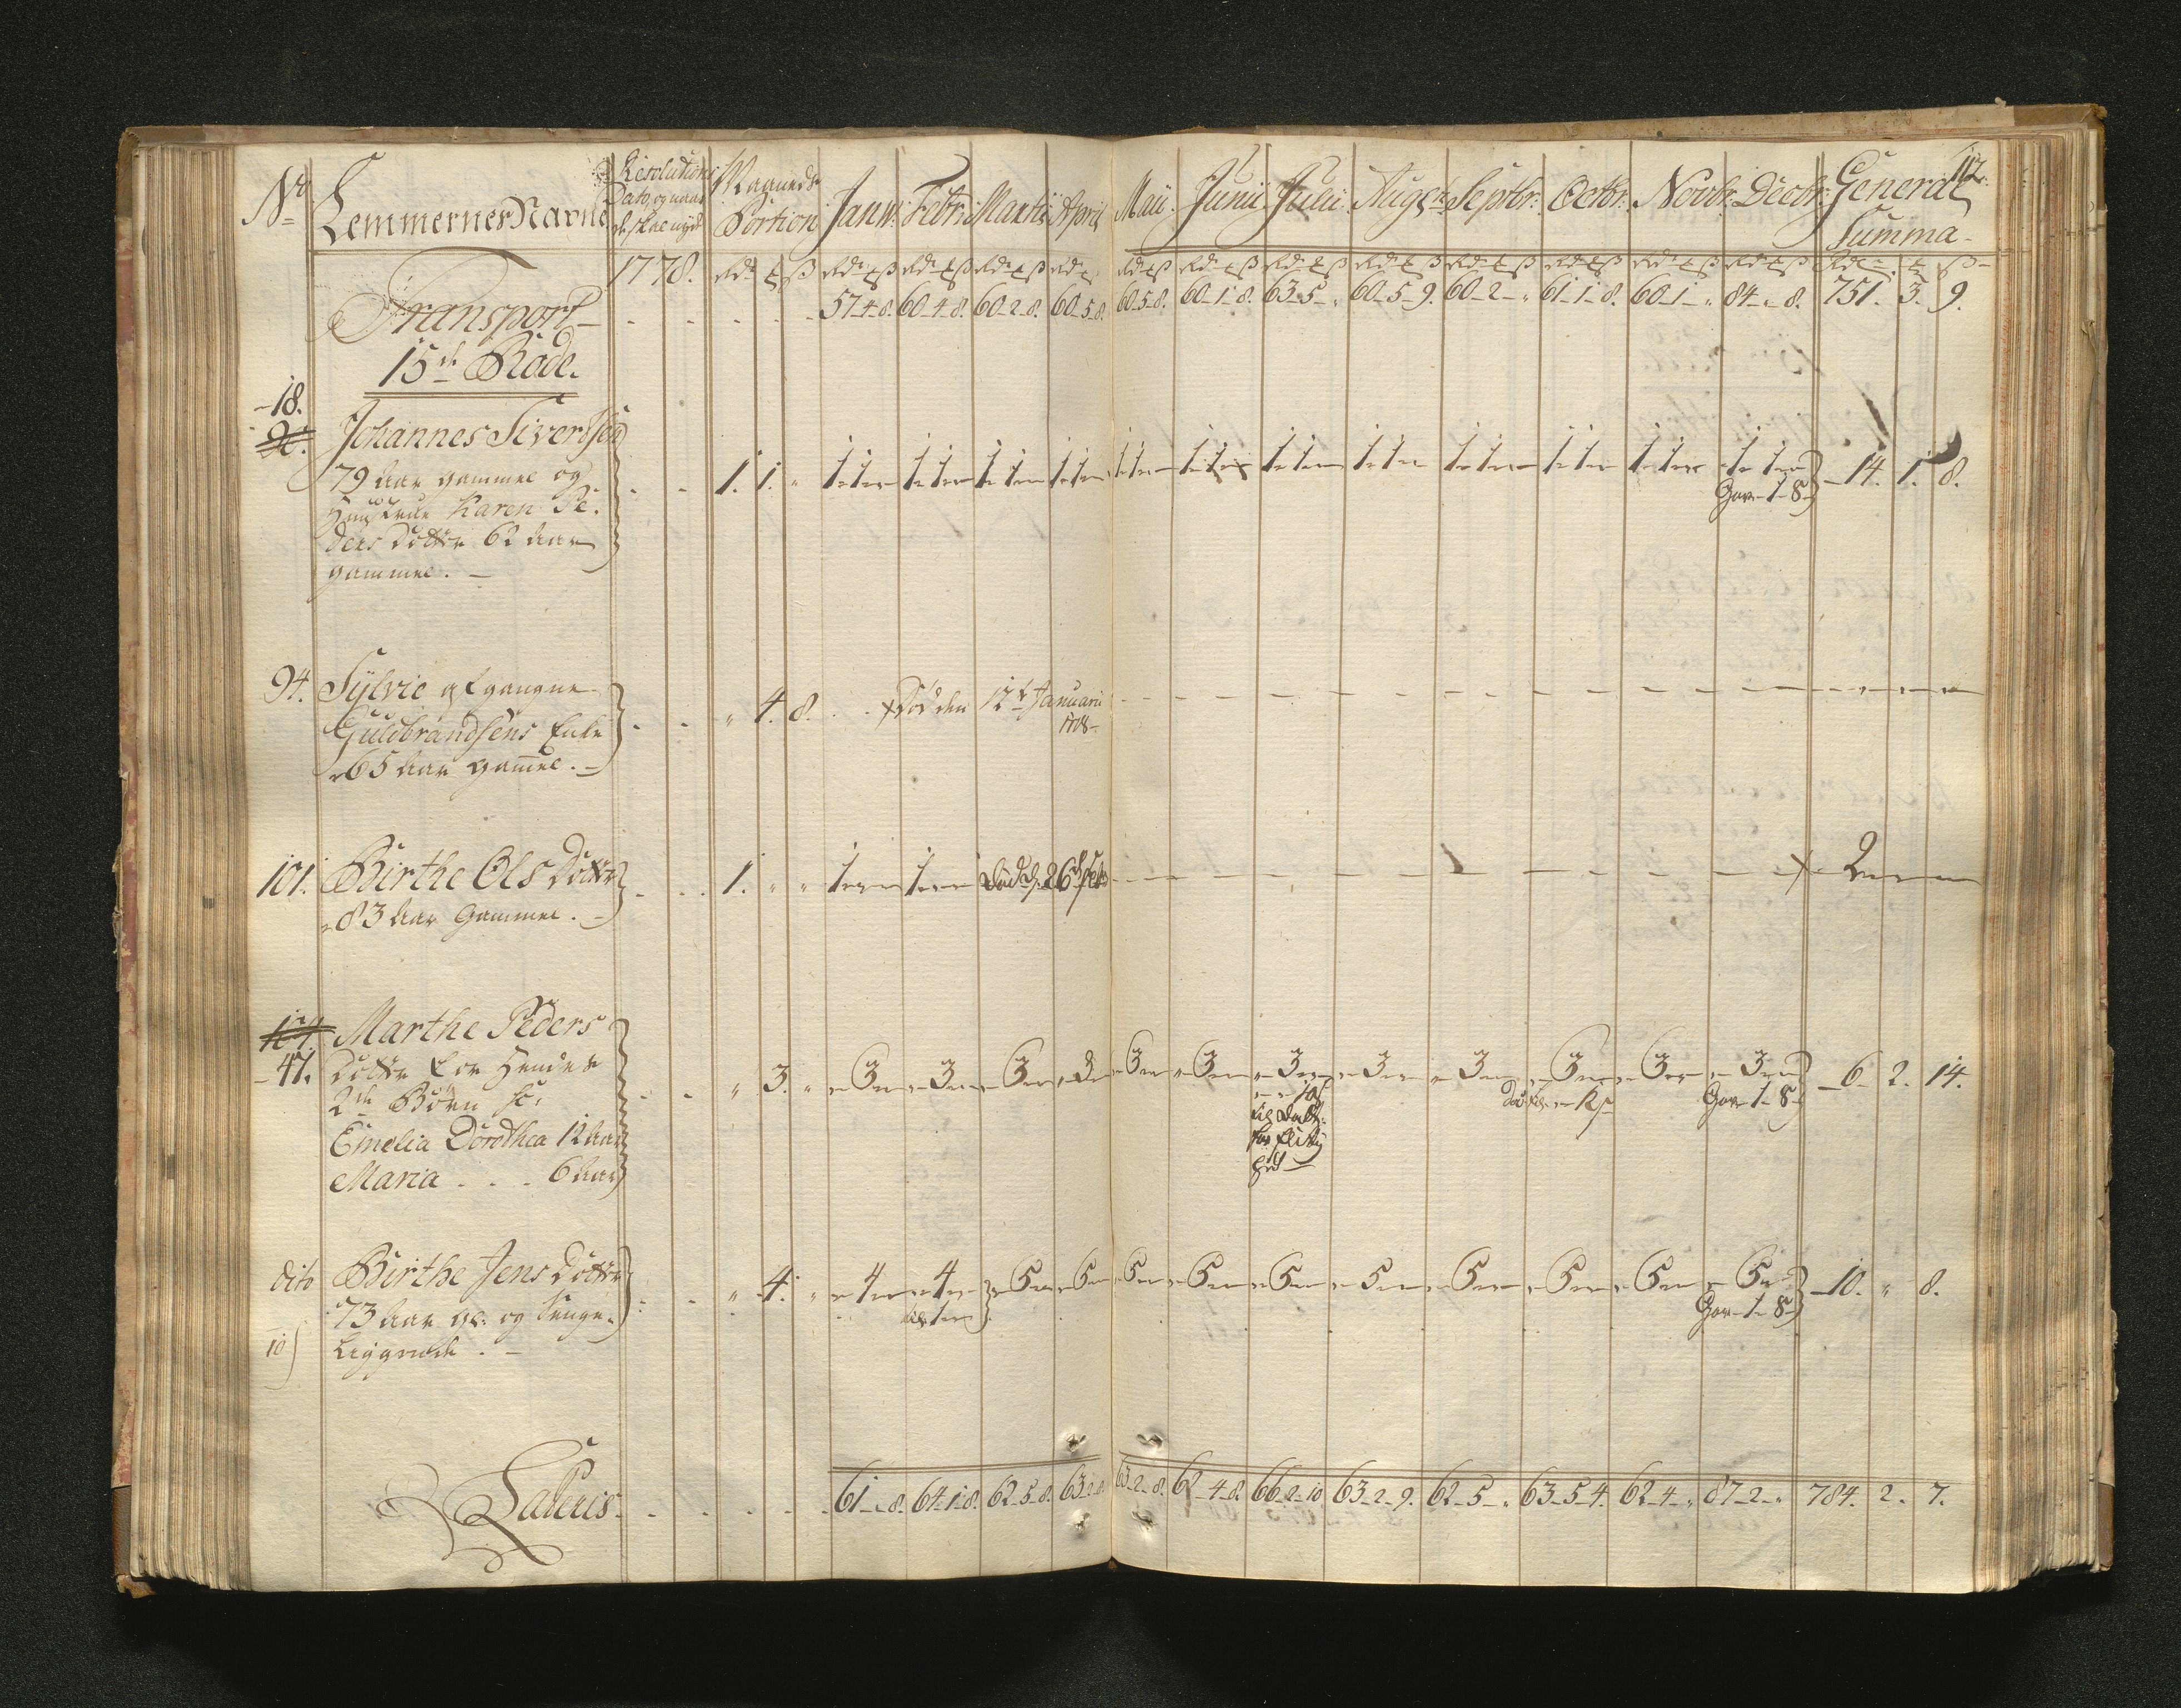 112.
No Lemmernes Navne Resolutions Dato, og naar de skal nyde Maaneds Portion Janur: Febr: Martii April Maii Junii Julii Augstii Septbr: Octbr: Novbr: Decbr: General Summa
1778. Rdr ß Rdr ß Rdr ß Rdr ß Rdr
Transport 57-4-8. 60-4-8. 60-2-8. 60-5-8. 60-5-8. 60-1-8. 63-5-" 60-5-9. 60-2-" 61-1-8. 60-1-" 84-"-8. 751. 3. 9.
15de Rode.
18.
Johannes Sivertsen
79 Aar gammel og 1. 1. " 1-1-" 1-1-" 1-1-" 1-1-" 1-1-" 1-1-" 1-1-" 1-1-" 1-1-" 1-1-" 1-1-" 1-1-" 14. 1. 8.
Hustrue Karen Pe- Gav-1-8
ders Dotter 62 Aar
gammel.
94. Sylvie afgangne
Guldbrandsens Enke " 4. 8. Død den 12te Januarii
1778
65 Aar gamel.
101. Birthe Ols Dotter 1. " " 1-"-" 1-"-" Død d. 26de Febr 2-"-"
83 Aar Gammel.
104. Marthe Peders
47. Dotter for Hendes " 3. " "-3-" "-3-" "-3-" "-3-" "-3-" "-3-" "-3-" "-3-" "-3-" "-3-" "-3-" "-3-" 6. 2. 14.
2de Børn Gav-1-8
Emelia Dorothea 12 Aar
Maria . . . 6 Aar
dito Birthe Jens Dotter " 4. " "-4-" "-4-" "-5-" "-5-" "-5-" "-5-" "-5-" "-5-" "-5-" "-5-" "-5-" "-5-" 10. " 8.
73 Aar gl: og Senge- Gav-1-8
Liggende
Lateris 61-"-8. 64-1-8. 62-5-8. 63-2-8. 63-2-8. 62-4-8. 66-2-10 63-2-9. 62-5-" 63-5-4. 62-4-" 87-2-" 784. 2. 7.